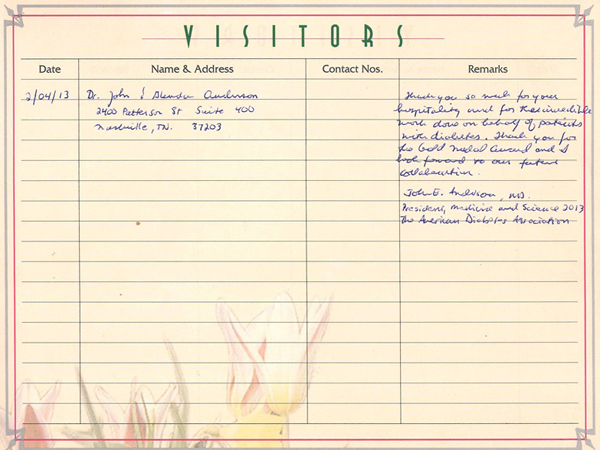 VISITORS
Date Name & Address Contact Nos. Remarks
2/04/13 Dr. John & Anderson
2400 Patterson St Suite 400
Nashville, TN. 37203
Thank you so much for your
hospitality and for the incredible
work done on behalf of patients
with diabetes. Thank you for
the Gold Medal Award and I
look forward to our future
collaboration.
John E. Anderson, MD.
President, Medicine and Science 2013
The American Diabetes Association